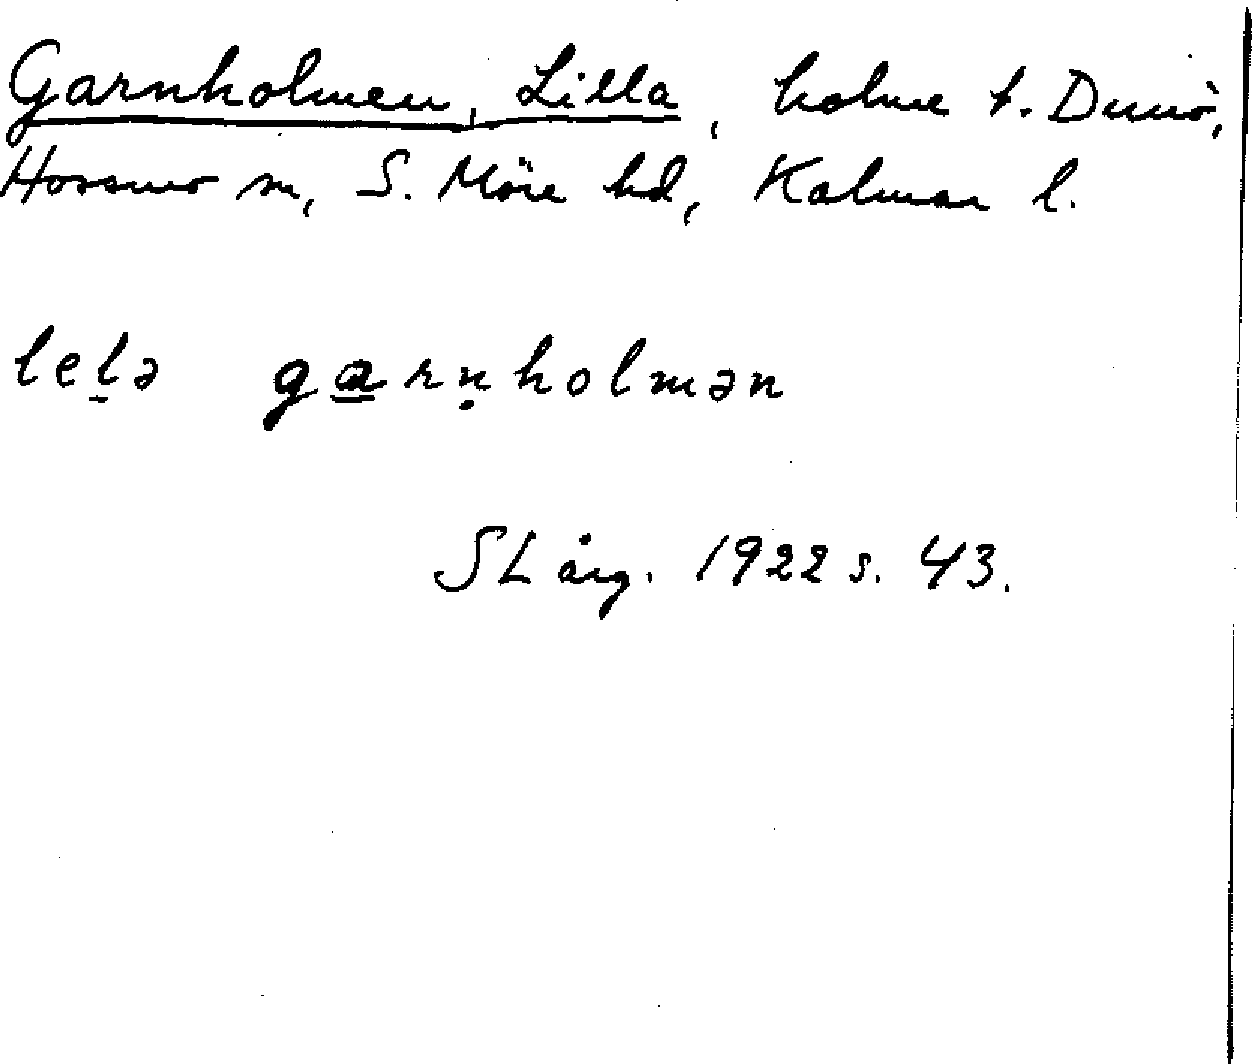 Garnholmen, Lilla, holme t. Dunö,
Hossmo sn, S. Möre hd, Kalmar l.
lel̠ə ga̲rṇholmən
SL årg. 1922 s. 43.